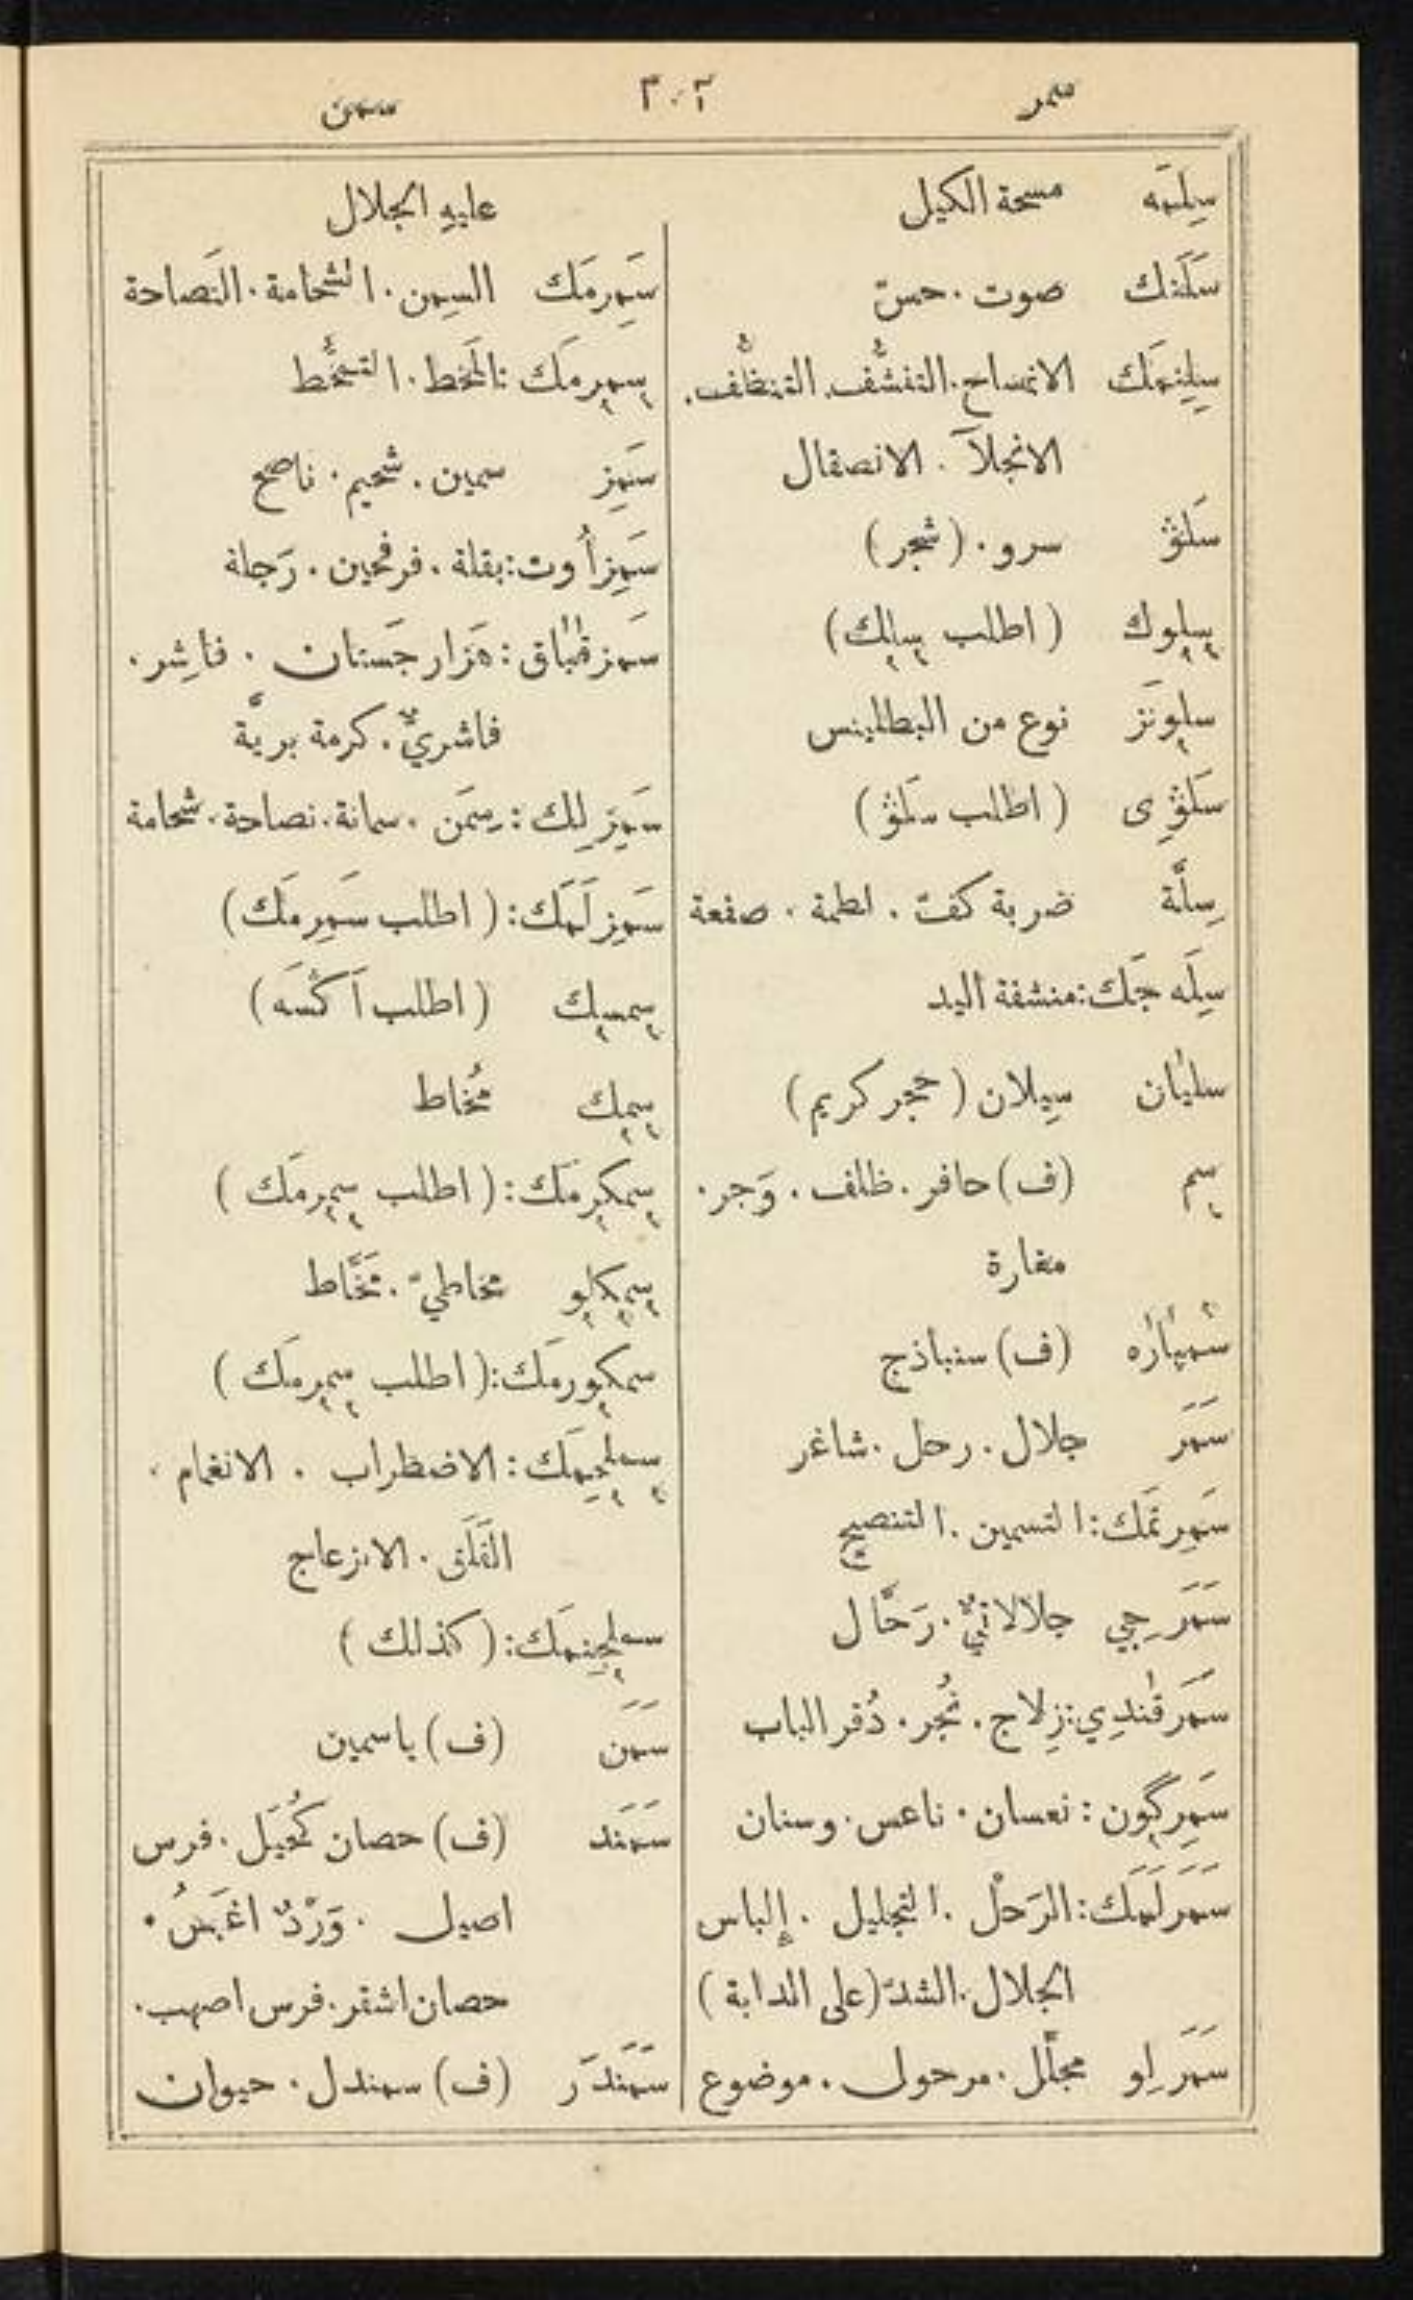 سمر ٣٠٢ سمن
سِلمَه مسحة الكيل
سَلَنك صوت ٠ حسّ
سِلِنمَك الانمساح ٠ التنشُّف ٠ التنظُّف ٠
الانجلآ ٠ الانصقال
سَلڤ سرو ٠ (شجر)
سلوك (اطلب سلك)
سلونَز نوع من البطلينس
سَلڤِى (اطلب سلڤ)
سِلَّة ضربة كفّ ٠ لطمة ٠ صفعة
سِلَه جَك: منشفة اليد
سليٰان سِيلان (حجر كريم)
سم (ف) حافر ٠ ظلف ٠ وَجر ٠
مغارة
سمپاره (ف) سنباذج
سَمَر جلال ٠ رحل ٠ شاغر
سَمِرتمَك: التسمين ٠ التنصيح
سَمَرجِي جلالاتيٌّ ٠ رَحَّال
سَمَرقندِي: زِلاج ٠ نُجر ٠ دُقر الباب
سَمِرگون: نعسان ٠ ناعس ٠ وسنان
سَمَرلَمَك: الرَحْل ٠ التجليل ٠ إِلباس
الجلال ٠ الشدّ (على الدابة)
سَمَرلِو مجلّل ٠ مرحول ٠ موضوع
عليهِ الجلال
سَمِرمَك السِمن ٠ الشحامة ٠ النَصاحة
سمرمَك: المَخط ٠ التمخُّط
سَمِز سمين ٠ شحيم ٠ ناصح
سَمِز اُوت: بقلة ٠ فرفحين ٠ رَجلة
سَمز قباق: هَزار جَسنان ٠ فاشِر ٠
فاشريٌّ ٠ كرمة بريَّة
سَمِزلِك: سِمَن ٠ سمانة ٠ نصاحة ٠ شحامة
سَمِزلَمَك: (اطلب سَمِرمَك)
سمسك (اطلب اَكسَه)
سمك مُخاط
سمكِرمَك: (اطلب سمرمَك)
سمكلو مخاطيّ ٠ مَخَّاط
سمكورمَك: (اطلب سمرمَك)
سملجِمَك: الاضطراب ٠ الانغمام ٠
القَلَق ٠ الانزعاج
سملجِنمَك: (كذلك)
سَمَن (ف) ياسمين
سَمَند (ف) حصان كُحَيَل ٠ فرس
اصيل ٠ وَرْدٌ اغبَسُ ٠
حصان اشقر ٠ فرس اصهب ٠
سَمَندَر (ف) سمندل ٠ حيوان